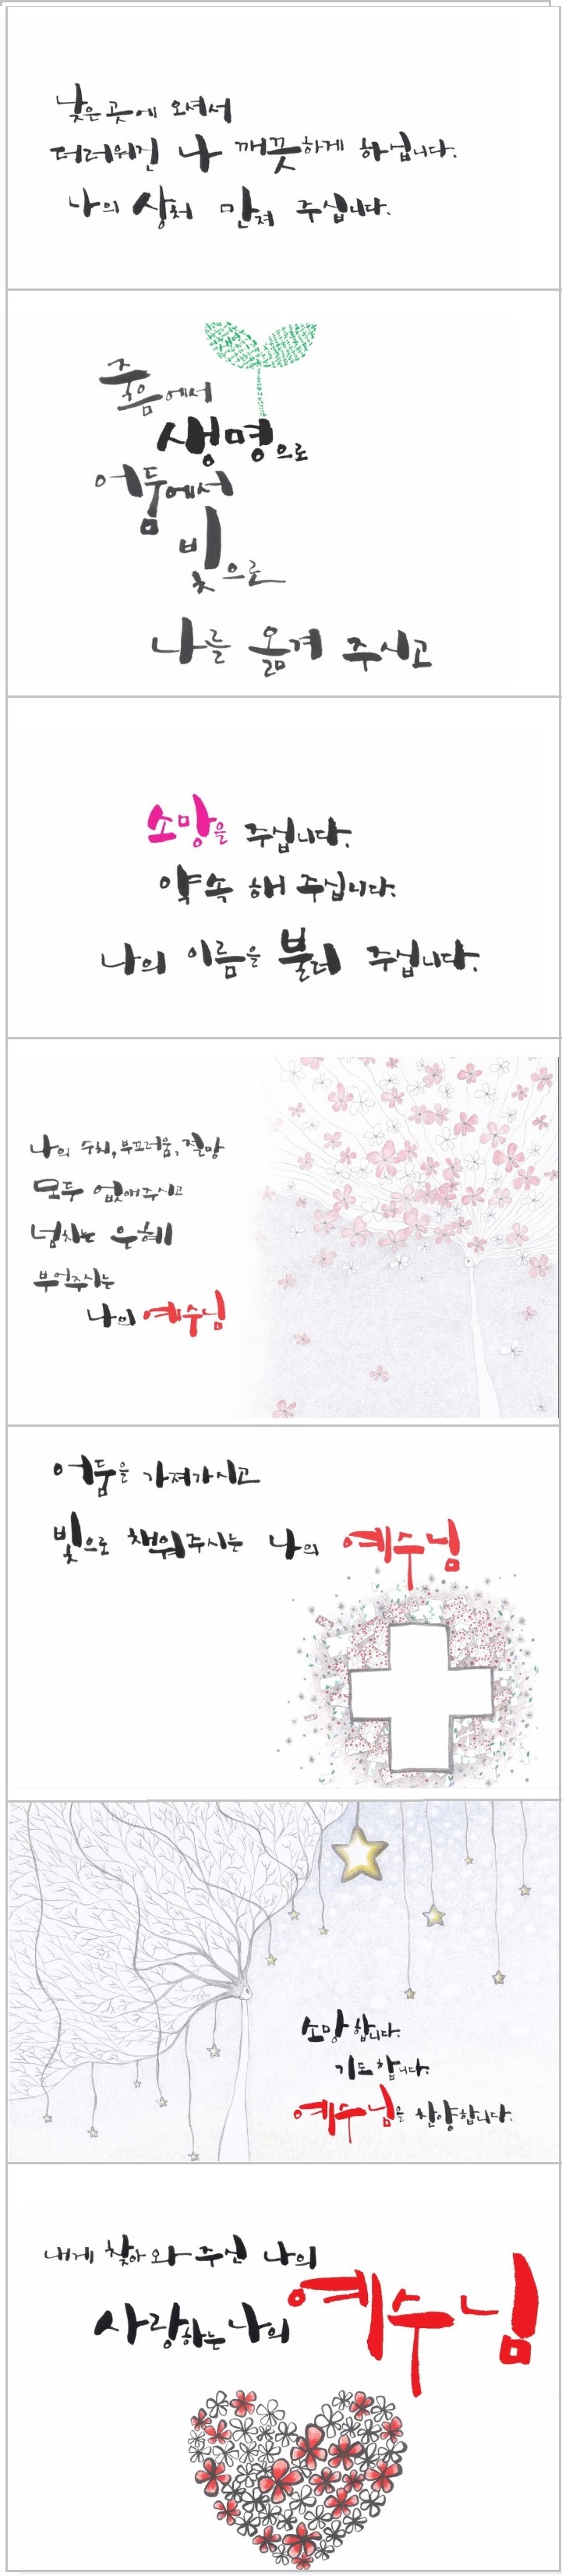 낮은 곳에 오셔서
더러워진 나 깨끗하게 하십니다.
나의 상처 만져 주십니다.
죽음에서
생명으로
어둠에서
빛으로
나를 옮겨 주시고
소망을 주십니다.
약속 해 주십니다.
나의 이름을 불러 주십니다.
나의 수치, 부끄러움, 절망
모두 없애주시고
넘치는 은혜
부어주시는
나의 예수님
어둠을 가져가시고
빛으로 채워주시는 나의 예수님
소망합니다.
기도합니다.
예수님을 찬양합니다.
내게 찾아 와 주신 나의
사랑하는 나의 예수님